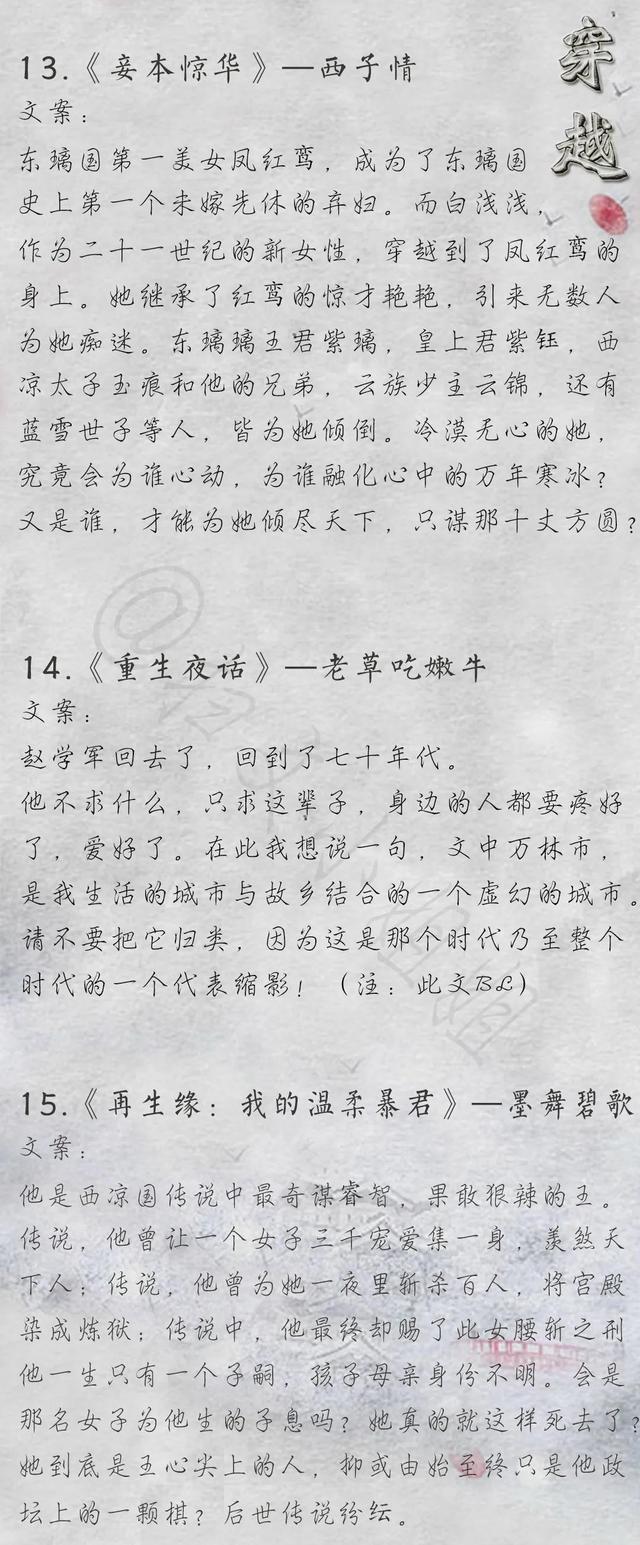 穿越
13.《妾本惊华》—西子情
文案：
东璃国第一美女凤红鸾，成为了东璃国
史上第一个未嫁先休的弃妇。而白浅浅，
作为二十一世纪的新女性，穿越到了凤红鸾的
身上。她继承了红鸾的惊才艳艳，引来无数人
为她痴迷。东璃璃王君紫璃，皇上君紫钰，西
凉太子玉痕和他的兄弟，云族少主云锦，还有
蓝雪世子等人，皆为她倾倒。冷漠无心的她，
究竟会为谁心动，为谁融化心中的万年寒冰？
又是谁，才能为她倾尽天下，只谋那十丈方圆？
14.《重生夜话》—老草吃嫩牛
文案：
赵学军回去了，回到了七十年代。
他不求什么，只求这辈子，身边的人都要疼好
了，爱好了。在此我想说一句，文中万林市，
是我生活的城市与故乡结合的一个虚幻的城市。
请不要把它归类，因为这是那个时代乃至整个
时代的一个代表缩影！（注：此文BL）
15.《再生缘：我的温柔暴君》—墨舞碧歌
文案：
他是西凉国传说中最奇谋睿智，果敢狠辣的王。
传说，他曾让一个女子三千宠爱集一身，羡煞天
下人；传说，他曾为她一夜里斩杀百人，将宫殿
染成炼狱；传说中，他最终却赐了此女腰斩之刑
他一生只有一个子嗣，孩子母亲身份不明。会是
那名女子为他生的子息吗？她真的就这样死去了？
她到底是王心尖上的人，抑或由始至终只是他政
坛上的一颗棋？后世传说纷纭。